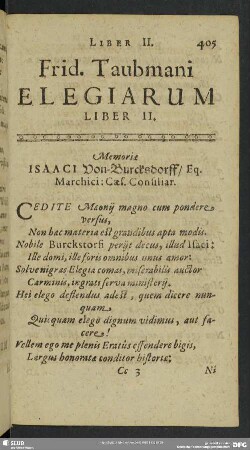 LIBER II. 405
Frid. Taubmani
ELEGIARUM
LIBER II.
Memoriæ
ISAACI Von-Burcksdorff/ Eq.
Marchici: Cæs. Consiliar.
CEDITE Mæonij magno cum pondere
versus,
Non hæc materia est grandibus apta modis.
Nobile Burckstorfi perijt decus, illud Isaci:
Ille domi, ille foris omnibus unus amor.
Solve nigras Elegia comas, miserabilis auctor
Carminis, ingrati serva ministerij.
Hei elego deflendus adest, quem dicere nun-
quam
Quisquam elego dignum vidimus, aut fa-
cere!
Vellem ego me plenis Eratûs effendere bigis,
Largus honoratæ conditor historiæ;
Cc 3 Ni
SLUB